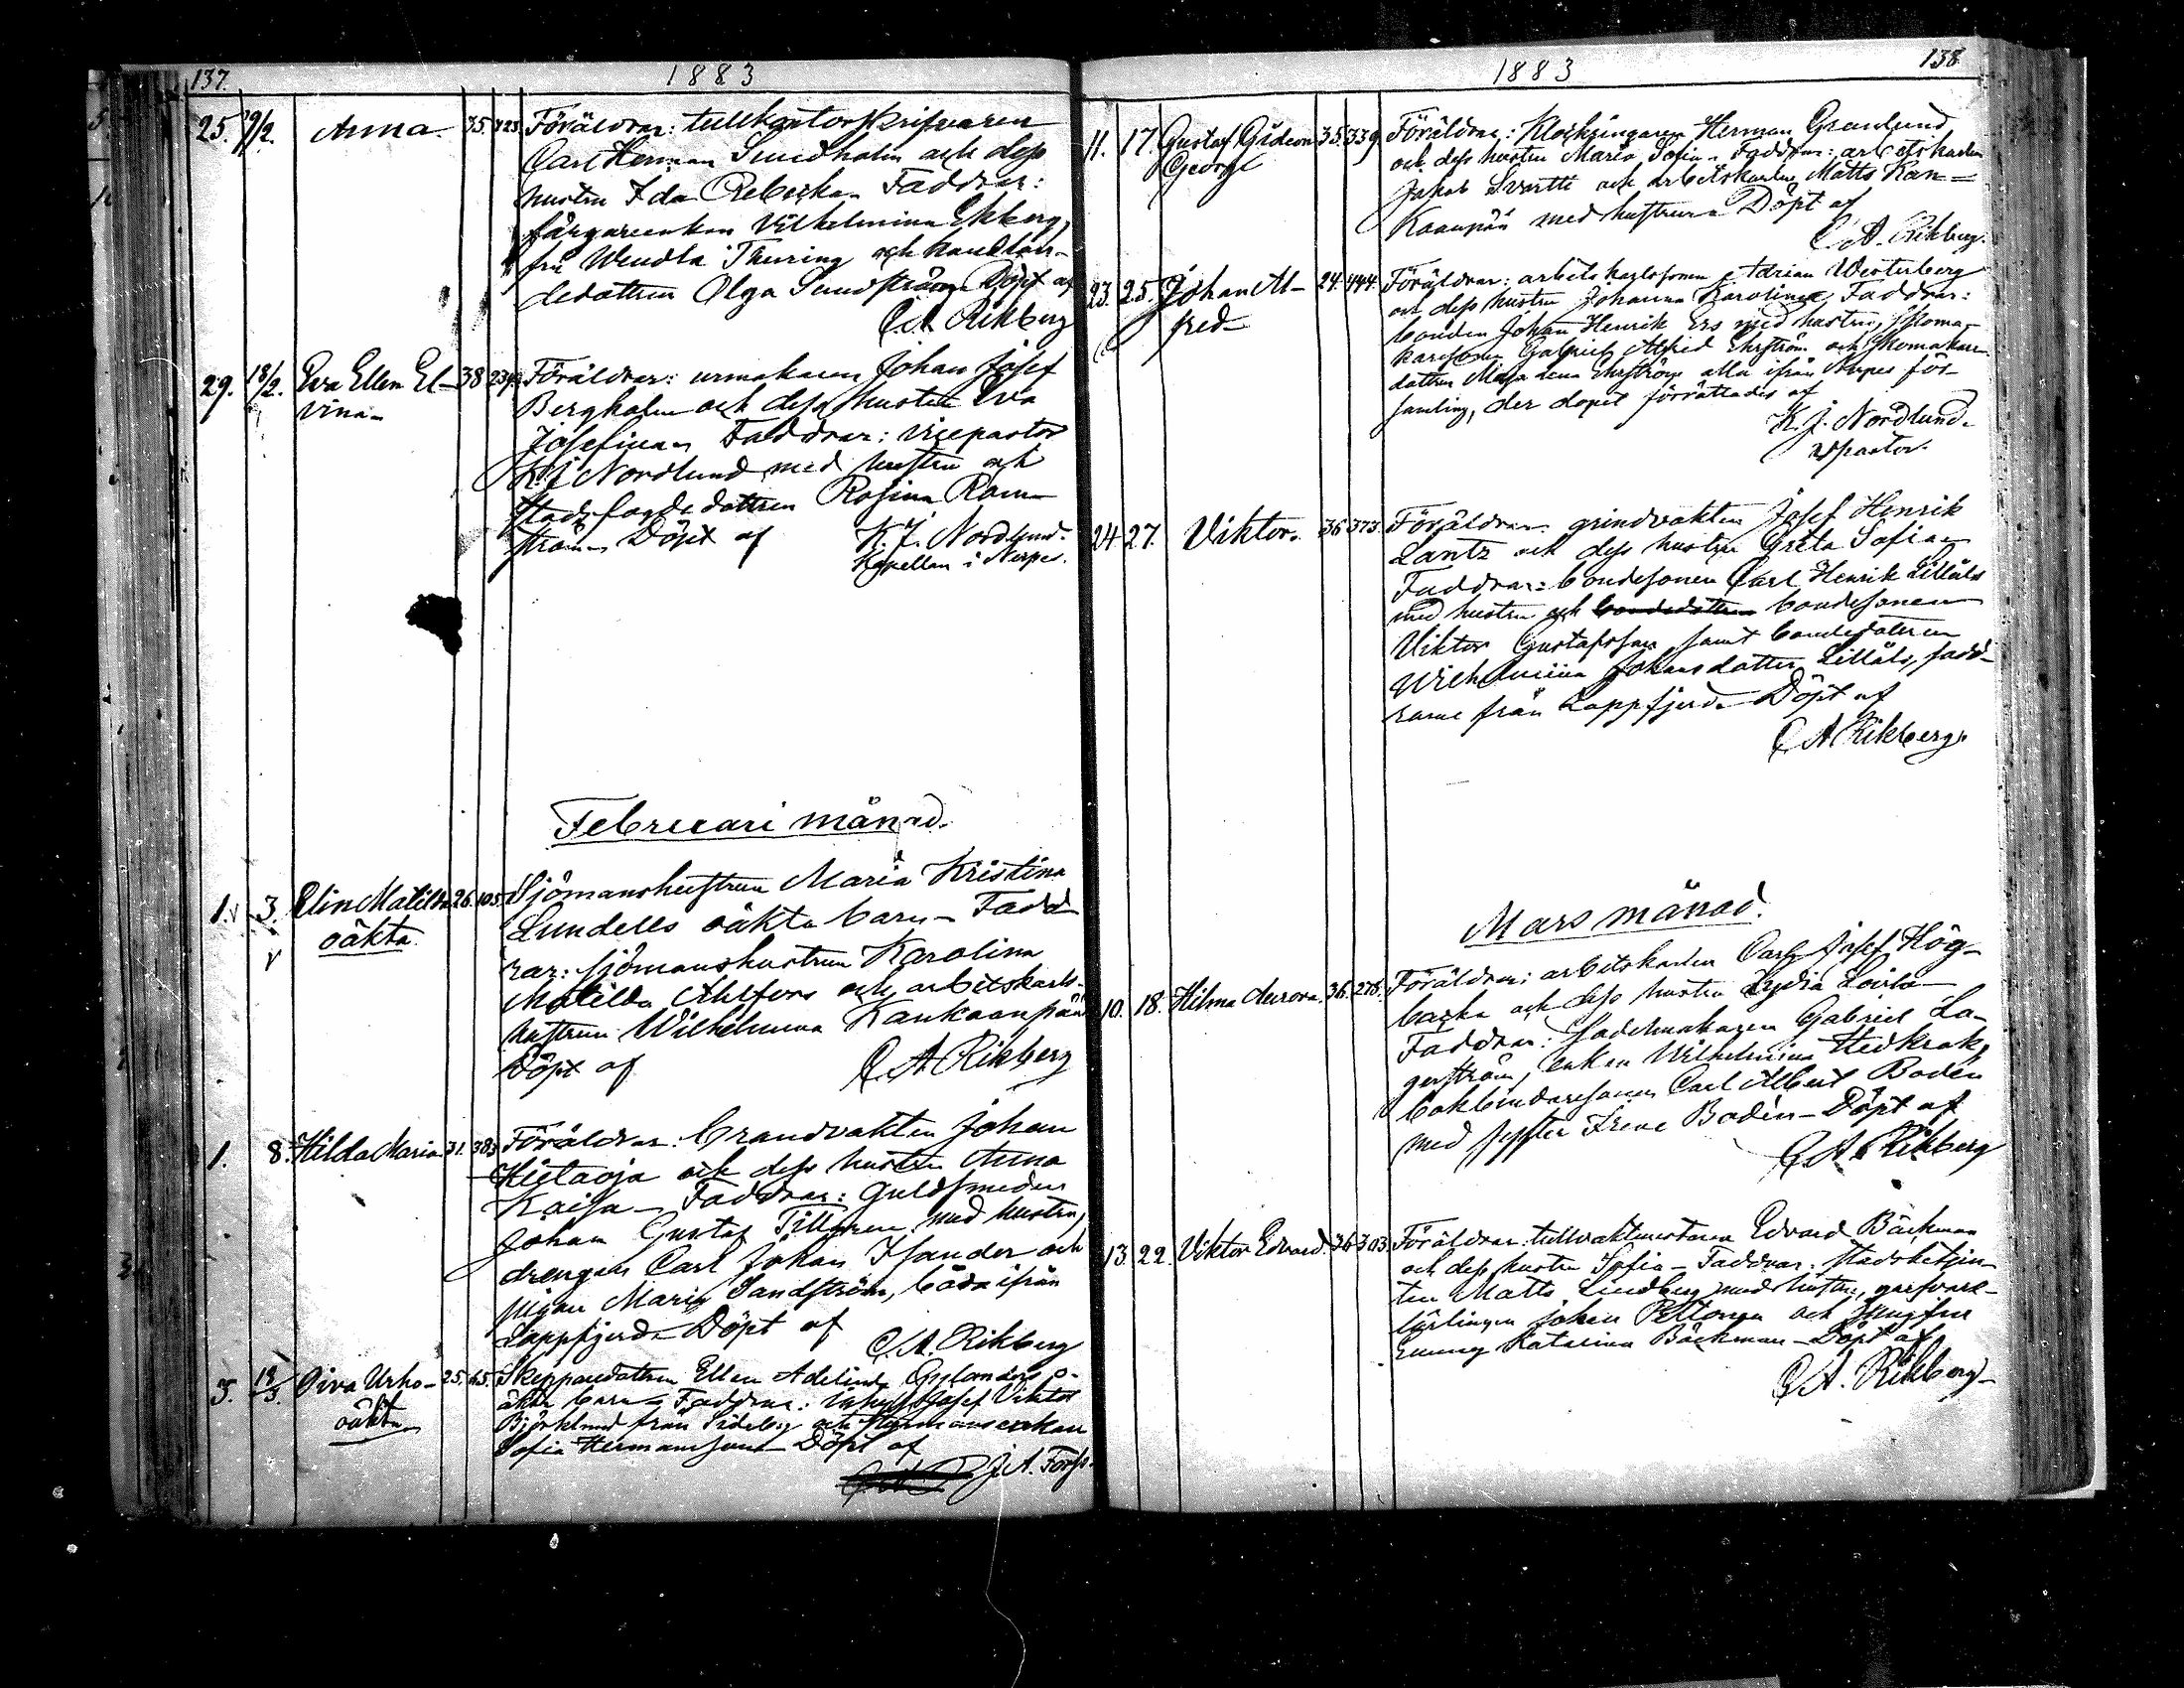 137.
1883
25. 9/2. Anna. 35. 323. Föräldrar: tullkontorskrifvaren
Carl Herman Sundholm och dess
hustru Ida Rebecka. Faddrar:
färgareenkan Vilhelmina Ekberg,
fru Wendla Thuring och handlan-
dedottren Olga Sundström Döpt af
C A Rikberg
29. 18/2. Eva Ellen El- 38 Föräldrar: urmakaren Johan Josef
vina Bergholm och dess hustru Eva
Josefina. Faddrar: vicepastor
K J Nordlund med hustru och
stadsfogdedottren Rosina Ram-
ström Döpt af K. J. Nordlund.
Kapellan i Nerpes.
Februari månad.
1. 3. Elin Matilda 26. 105. Sjömanshustrun Maria Kristina
oäkta. Lundells oäkta barn - Fadd-
rar: sjömanshustrun Karolina
Matilda Ahlfors och arbetskarls-
hustrun Wilhelmina Kankaanpää
Döpt af C. A Rikberg
1. 8. Hilda Maria 31. 383 Föräldrar: brandvakten Johan
Hietaoja och dess hustru Anna
Kaisa - Faddrar: Guldsmeden
Johan Gustaf med hustru,
drengen Carl Johan Isander och
pigan Maria Sandström, båda ifrån
Lappfjerd. Döpt af C. A. Rikberg
5. 18/3. Oiva Urho- 25. 65. Skepparedottren Ellen Adelinde Gylanders o-
oäkta äkta barn - Faddrar: Josef Viktor
Björklund från Sideby och styrmansenkan
Sofia Hermansson - Döpt af
J. A. Forss.
138
1883
11. 17. Gustaf Gideon 35. 339. Föräldrar: Klockringaren Herman Granlund
Georg och dess hustru Maria Sofia. Faddrar: arbetskarlen
Jakob Svartti och arbetskarlen Matts Kan-
kaanpää med hustrur. Döpt af
C A. Rikberg.
23. 25. Johan Al- 24. 444. Föräldrar: arbetskarlssonen Adrian Westerberg
fred och dess hustru Johanna Karolina. Faddrar:
bonden Johan Henrik Ers med hustru, skoma-
karesonen Gabriel Alfrid Ehrström och skomakare-
dottren Maja Lena Ehrström alla ifrån Nerpes för-
samling, der dopet förrättades af
K. J. Nordlund.
v. pastor.
24. 27. Viktor. 36 373. Föräldrar: grindvakten Josef Henrik
Lantz och dess hustru Greta Sofia
Faddrar: bondesonen Carl Henrik Lillåls
med hustru och bondedottren bondesonen
Viktor Gustafsson samt bondedottren
Wilhelmina Johansdotter Lillåls, fadd-
rarne från Lappfjerd. Döpt af
C A Rikberg.
Mars månad.
10. 18. Hilma Aurora. 36. 276. Föräldrar: arbetskarlen Carl Josef Hög-
backa och dess hustru Lydia Lovisa
Faddrar: sadelmakaren Gabriel La-
gerström, enkan Wilhelmina Hedkrok,
bokbindaresonen Carl Albert Bodén
med syster Irene Bodén - Döpt af
C. A. Rikberg
13. 22. Viktor Edvard. 36 303. Föräldrar: tullvaktmästaren Edvard Bäckman
och dess hustru Sofia - Faddrar: stadsbetjen-
ten Matts Lindberg med hustru, garfvare-
lärlingen Johan Peltonen och Jungfru
Emmy Katarina Bäckman - Döpt af
C A. Rikberg